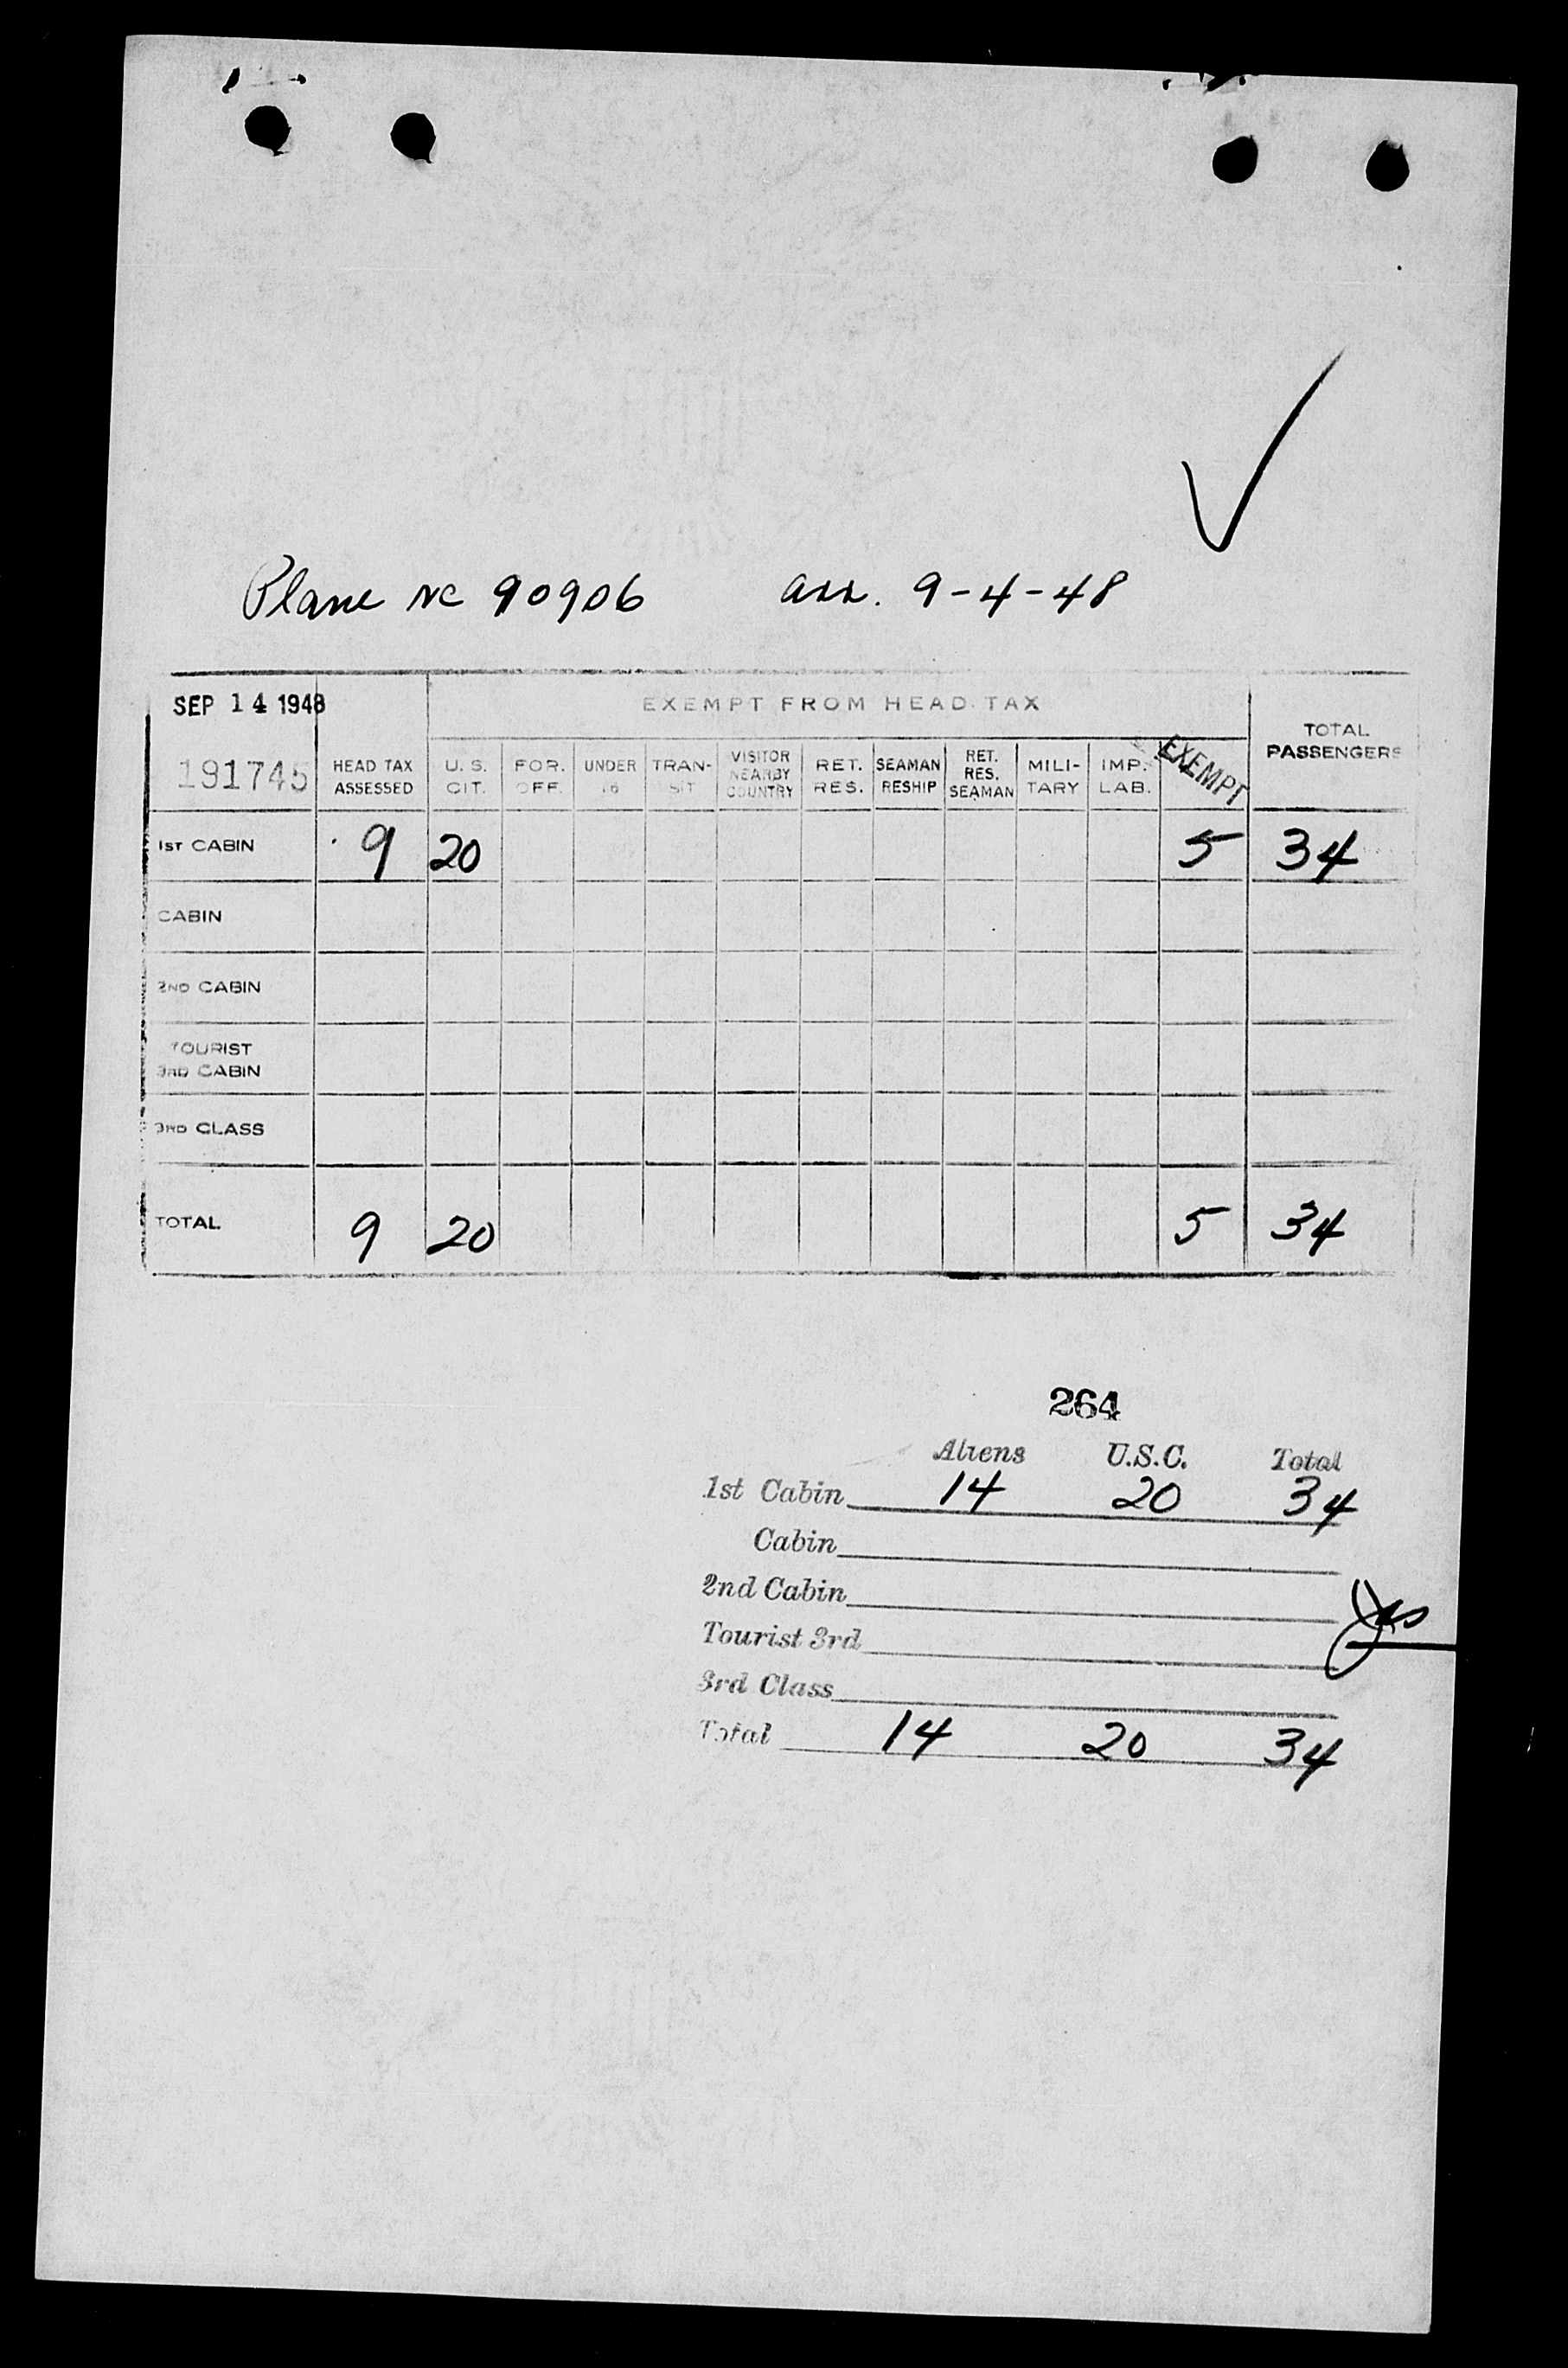 Plane NC 90906 arr. 9-4-48
SEP 14 1948 EXEMPT FROM HEAD TAX TOTAL PASSENGERS
191745 HEAD TAX ASSESSED U. S. CIT. FOR. OFF. UNDER 16 TRAN-SIT VISITOR NEARBY COUNTRY RET. RES. SEAMAN RESHIP RET. RES. SEAMAN MILI-TARY IMP. LAB. EXEMPT
1ST CABIN 9 20 5 34
CABIN
2ND CABIN
TOURIST
3RD CABIN
3RD CLASS
TOTAL 9 20 5 34
264
Aliens U.S.C. Total
1st Cabin 14 20 34
Cabin
2nd Cabin
Tourist 3rd
3rd Class
Total 14 20 34